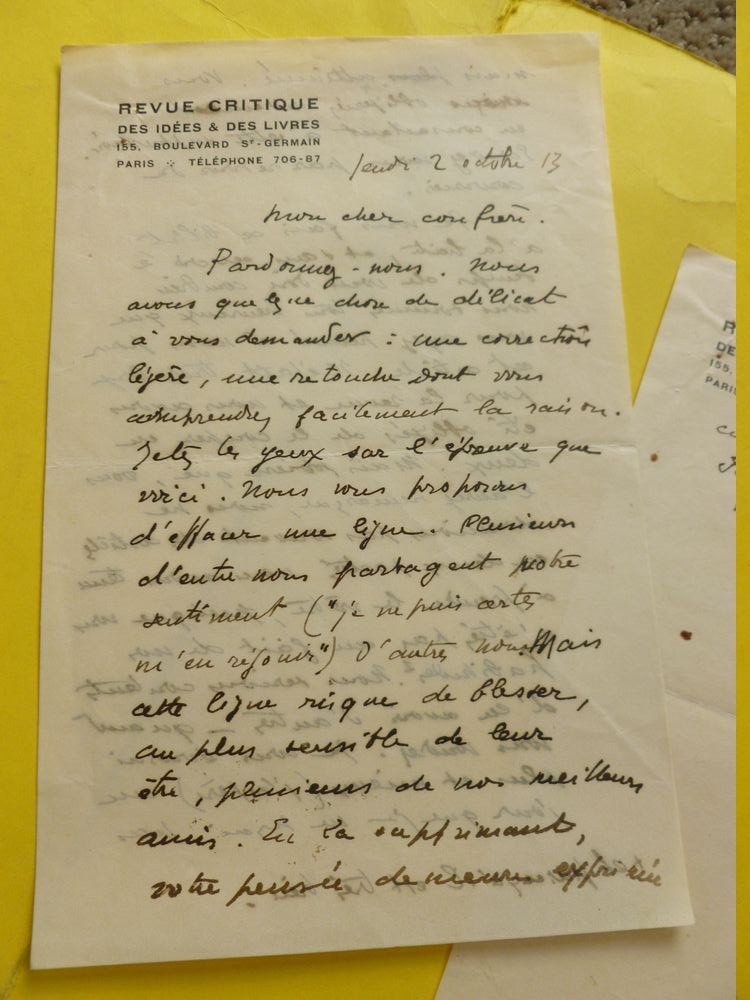 REVUE CRITIQUE
DES IDÉES & DES LIVRES
155, BOULEVARD St-GERMAIN
PARIS ⁘ TÉLÉPHONE 706-87
Jeudi 2 octobre 13
Mon cher confrère.
Pardonnez-nous. Nous
avons quelque chose de délicat
à vous demander : une correction
légère, une retouche dont vous
comprendrez facilement la raison.
Jetez les yeux sur l'épreuve que
voici. Nous vous proposons
d'effacer une ligne. Plusieurs
d'entre nous partagent votre
sentiment ("je ne puis certes
m'en réjouir") D'autres non. Mais
cette ligne risque de blesser,
au plus sensible de leur
être, plusieurs de nos meilleurs
amis. En la supprimant,
votre pensée demeure exprimée
R
DE
155,
PARIS